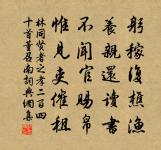 躬稼復樵漁
養親還讀書
不聞官賜帛
惟見吏催租
林同賢者之孝二百四
十首董召南詞典網集